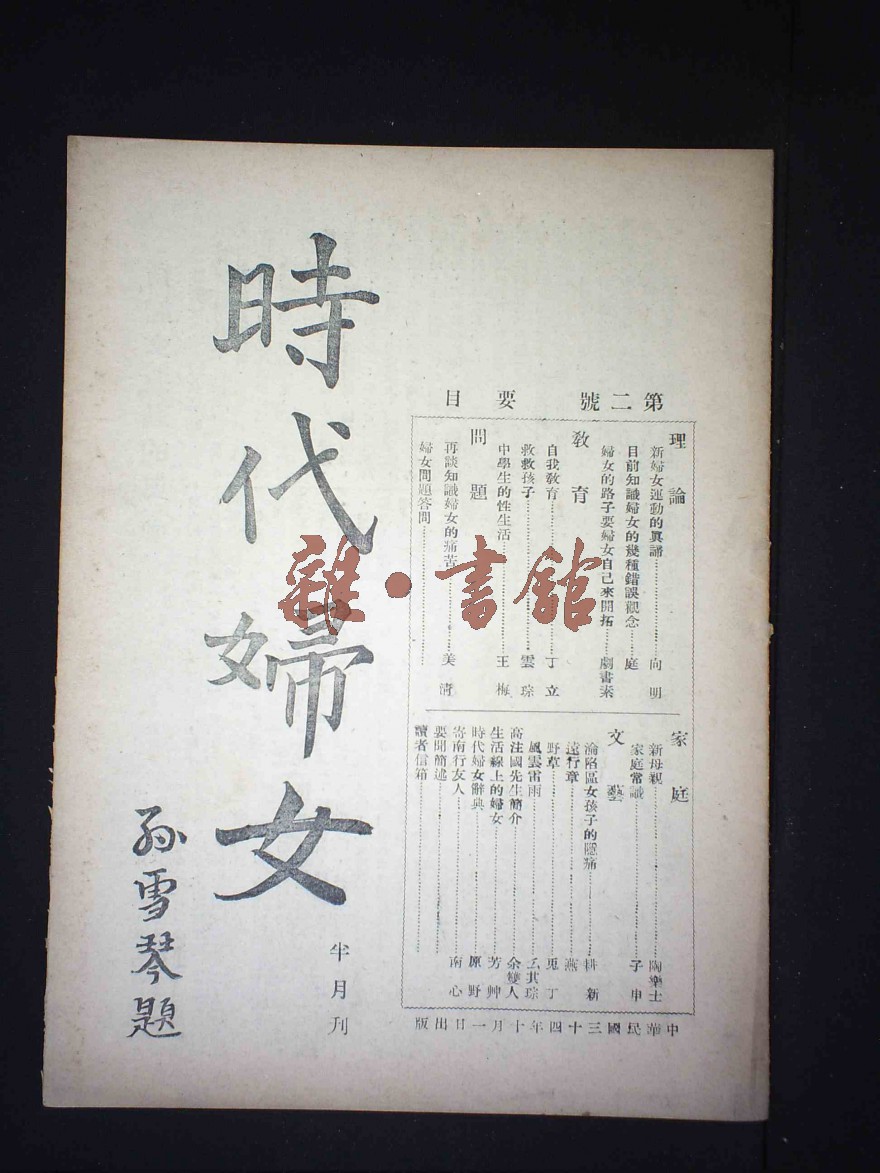 第二號 要目
理論
新婦女運動的真諦 向明
目前知識婦女的幾種錯誤觀念 庭
婦女的路子要婦女自己來開拓 劇書素
教育
自我教育 丁立
救救孩子 雲琮
中學生的性生活 王梅
問題
再談知識婦女的痛苦 美清
婦女問題答問
家庭
新母親 陶樂士
家庭常識 子申
文藝
淪陷區女孩子的隱痛 耕新
遠行章 燕
野草 兎丁
風雲雷雨 其琮
高注國先生簡介 余雙人
生活線上的婦女 芳艸
時代婦女辭典 原野
寄南行友人 南心
要聞簡述
讀者信箱
中華民國三十四年十月一日出版
時代婦女
半月刊
孫雪琴題
雜·書館